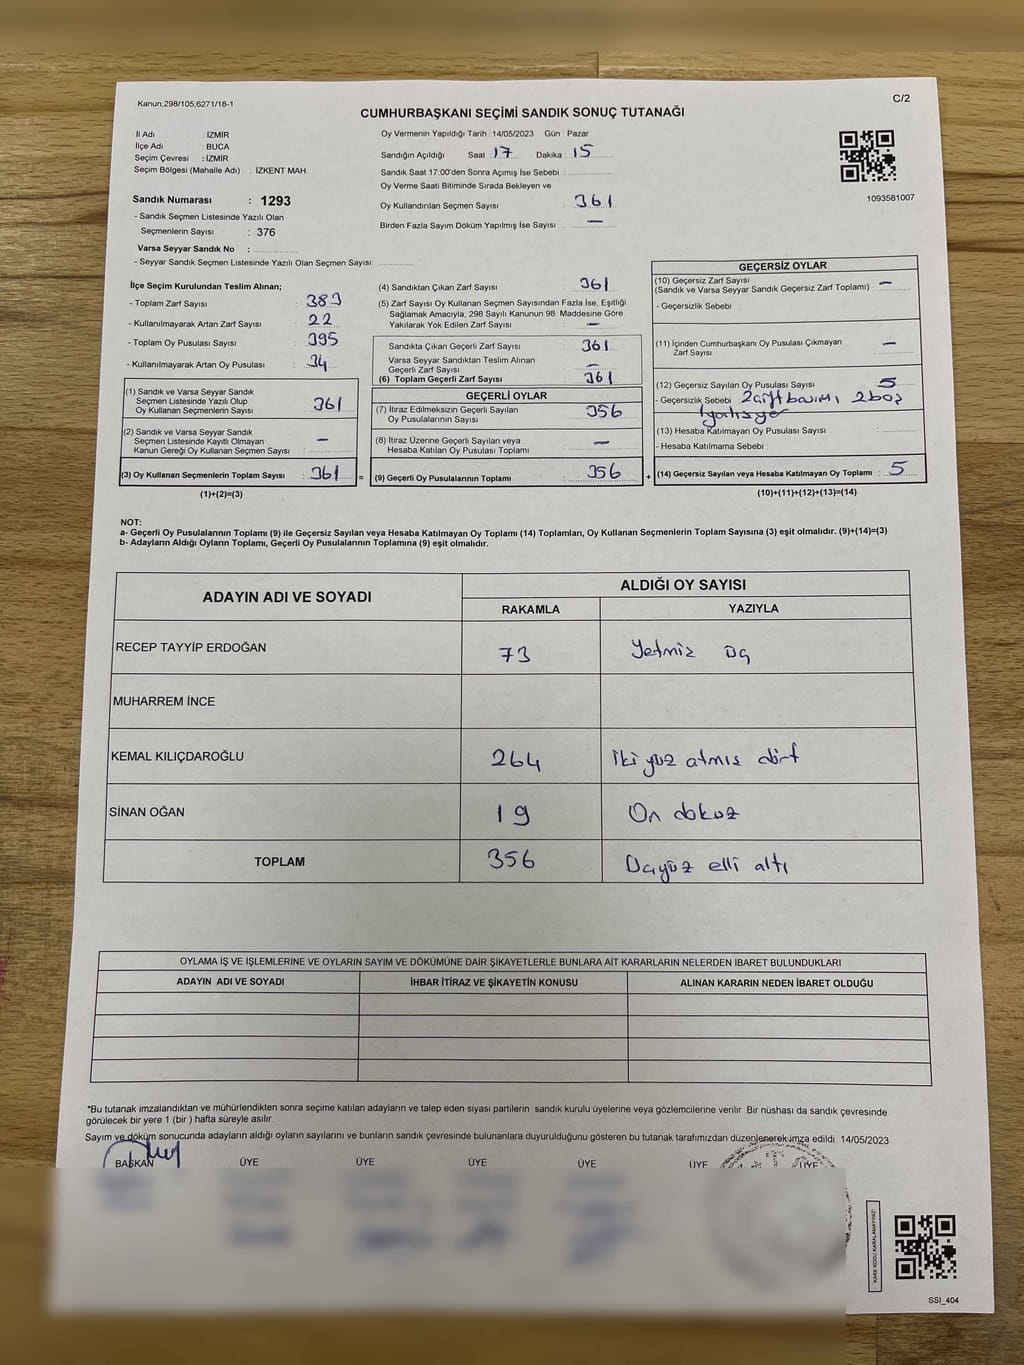 Kanun,298/105,6271/18-1
C/2
CUMHURBAŞKANI SEÇİMİ SANDIK SONUÇ TUTANAĞI
İl Adı : İZMİR
İlçe Adı : BUCA
Seçim Çevresi : İZMİR
Seçim Bölgesi (Mahalle Adı) : İZKENT MAH.
Oy Vermenin Yapıldığı Tarih :14/05/2023 Gün : Pazar
Sandığın Açıldığı Saat 17 Dakika : 15
Sandık Saat 17:00'den Sonra Açılmış İse Sebebi :
Oy Verme Saati Bitiminde Sırada Bekleyen ve
Oy Kullandırılan Seçmen Sayısı : 361
Birden Fazla Sayım Döküm Yapılmış İse Sayısı : —
1093581007
Sandık Numarası : 1293
- Sandık Seçmen Listesinde Yazılı Olan
Seçmenlerin Sayısı : 376
Varsa Seyyar Sandık No :
- Seyyar Sandık Seçmen Listesinde Yazılı Olan Seçmen Sayısı:
İlçe Seçim Kurulundan Teslim Alınan;
- Toplam Zarf Sayısı : 383
- Kullanılmayarak Artan Zarf Sayısı : 22
- Toplam Oy Pusulası Sayısı : 395
- Kullanılmayarak Artan Oy Pusulası : 34
(1) Sandık ve Varsa Seyyar Sandık
Seçmen Listesinde Yazılı Olup
Oy Kullanan Seçmenlerin Sayısı : 361
(2) Sandık ve Varsa Seyyar Sandık
Seçmen Listesinde Kayıtlı Olmayan
Kanun Gereği Oy Kullanan Seçmen Sayısı : —
(3) Oy Kullanan Seçmenlerin Toplam Sayısı : 361
(1)+(2)=(3)
(4) Sandıktan Çıkan Zarf Sayısı : 361
(5) Zarf Sayısı Oy Kullanan Seçmen Sayısından Fazla İse, Eşitliği
Sağlamak Amacıyla, 298 Sayılı Kanunun 98. Maddesine Göre
Yakılarak Yok Edilen Zarf Sayısı : —
Sandıkta Çıkan Geçerli Zarf Sayısı : 361
Varsa Seyyar Sandıktan Teslim Alınan
Geçerli Zarf Sayısı : —
(6) Toplam Geçerli Zarf Sayısı : 361
GEÇERLİ OYLAR
(7) İtiraz Edilmeksizin Geçerli Sayılan
Oy Pusulalarının Sayısı : 356
(8) İtiraz Üzerine Geçerli Sayılan veya
Hesaba Katılan Oy Pusulası Toplamı : —
= (9) Geçerli Oy Pusulalarının Toplamı : 356
GEÇERSİZ OYLAR
(10) Geçersiz Zarf Sayısı
(Sandık ve Varsa Seyyar Sandık Geçersiz Zarf Toplamı) : —
- Geçersizlik Sebebi :
(11) İçinden Cumhurbaşkanı Oy Pusulası Çıkmayan
Zarf Sayısı : —
(12) Geçersiz Sayılan Oy Pusulası Sayısı : 5
- Geçersizlik Sebebi : 2 çift basım, 2 boş
(13) Hesaba Katılmayan Oy Pusulası Sayısı :
- Hesaba Katılmama Sebebi :
+ (14) Geçersiz Sayılan veya Hesaba Katılmayan Oy Toplamı : 5
(10)+(11)+(12)+(13)=(14)
NOT:
a- Geçerli Oy Pusulalarının Toplamı (9) ile Geçersiz Sayılan veya Hesaba Katılmayan Oy Toplamı (14) Toplamları, Oy Kullanan Seçmenlerin Toplam Sayısına (3) eşit olmalıdır. (9)+(14)=(3)
b- Adayların Aldığı Oyların Toplamı, Geçerli Oy Pusulalarının Toplamına (9) eşit olmalıdır.
ADAYIN ADI VE SOYADI
ALDIĞI OY SAYISI
RAKAMLA YAZIYLA
RECEP TAYYİP ERDOĞAN 73 Yetmiz üç
MUHARREM İNCE
KEMAL KILIÇDAROĞLU 264 İki yüz atmıs dört
SİNAN OĞAN 19 On dokuz
TOPLAM 356 Üçyüz elli altı
OYLAMA İŞ VE İŞLEMLERİNE VE OYLARIN SAYIM VE DÖKÜMÜNE DAİR ŞİKAYETLERLE BUNLARA AİT KARARLARIN NELERDEN İBARET BULUNDUKLARI
ADAYIN ADI VE SOYADI İHBAR İTİRAZ VE ŞİKAYETİN KONUSU ALINAN KARARIN NEDEN İBARET OLDUĞU
*Bu tutanak imzalandıktan ve mühürlendikten sonra seçime katılan adayların ve talep eden siyasi partilerin sandık kurulu üyelerine veya gözlemcilerine verilir. Bir nüshası da sandık çevresinde
görülecek bir yere 1 (bir ) hafta süreyle asılır.
Sayım ve döküm sonucunda adayların aldığı oyların sayılarını ve bunların sandık çevresinde bulunanlara duyurulduğunu gösteren bu tutanak tarafımızdan düzenlenerek imza edildi. 14/05/2023
BAŞKAN ÜYE ÜYE ÜYE ÜYE ÜYE ÜYE
"KARE KODU KARALAMAYINIZ"
SSI_404